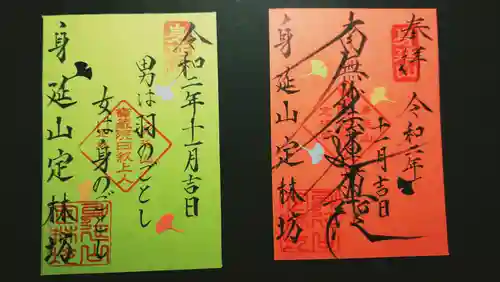 令和二年十一月吉日
男は羽のごとし
女は身のごとし
身延山定林坊
奉拝
令和二年十一月吉日
南無妙法蓮華経
身延山定林坊